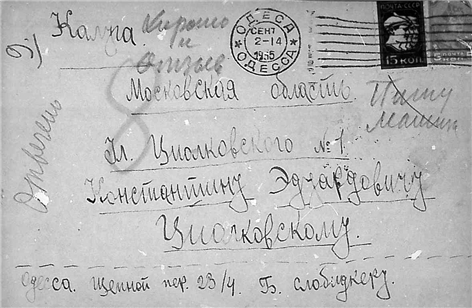 г/ Калуга
Хорошо
и
Отзыв
ОДЕССА
СЕНТ
2-14
1935
ОДЕССА
ПОЧТА СССР
15 КОП.
Московская область.
Пишу
Машин
Отвечено
Ул. Циолковского № 1
Константину Эдуардовичу
Циолковскому.
Одесса. Щепной пер. 23/4. Б. Слободкеру.